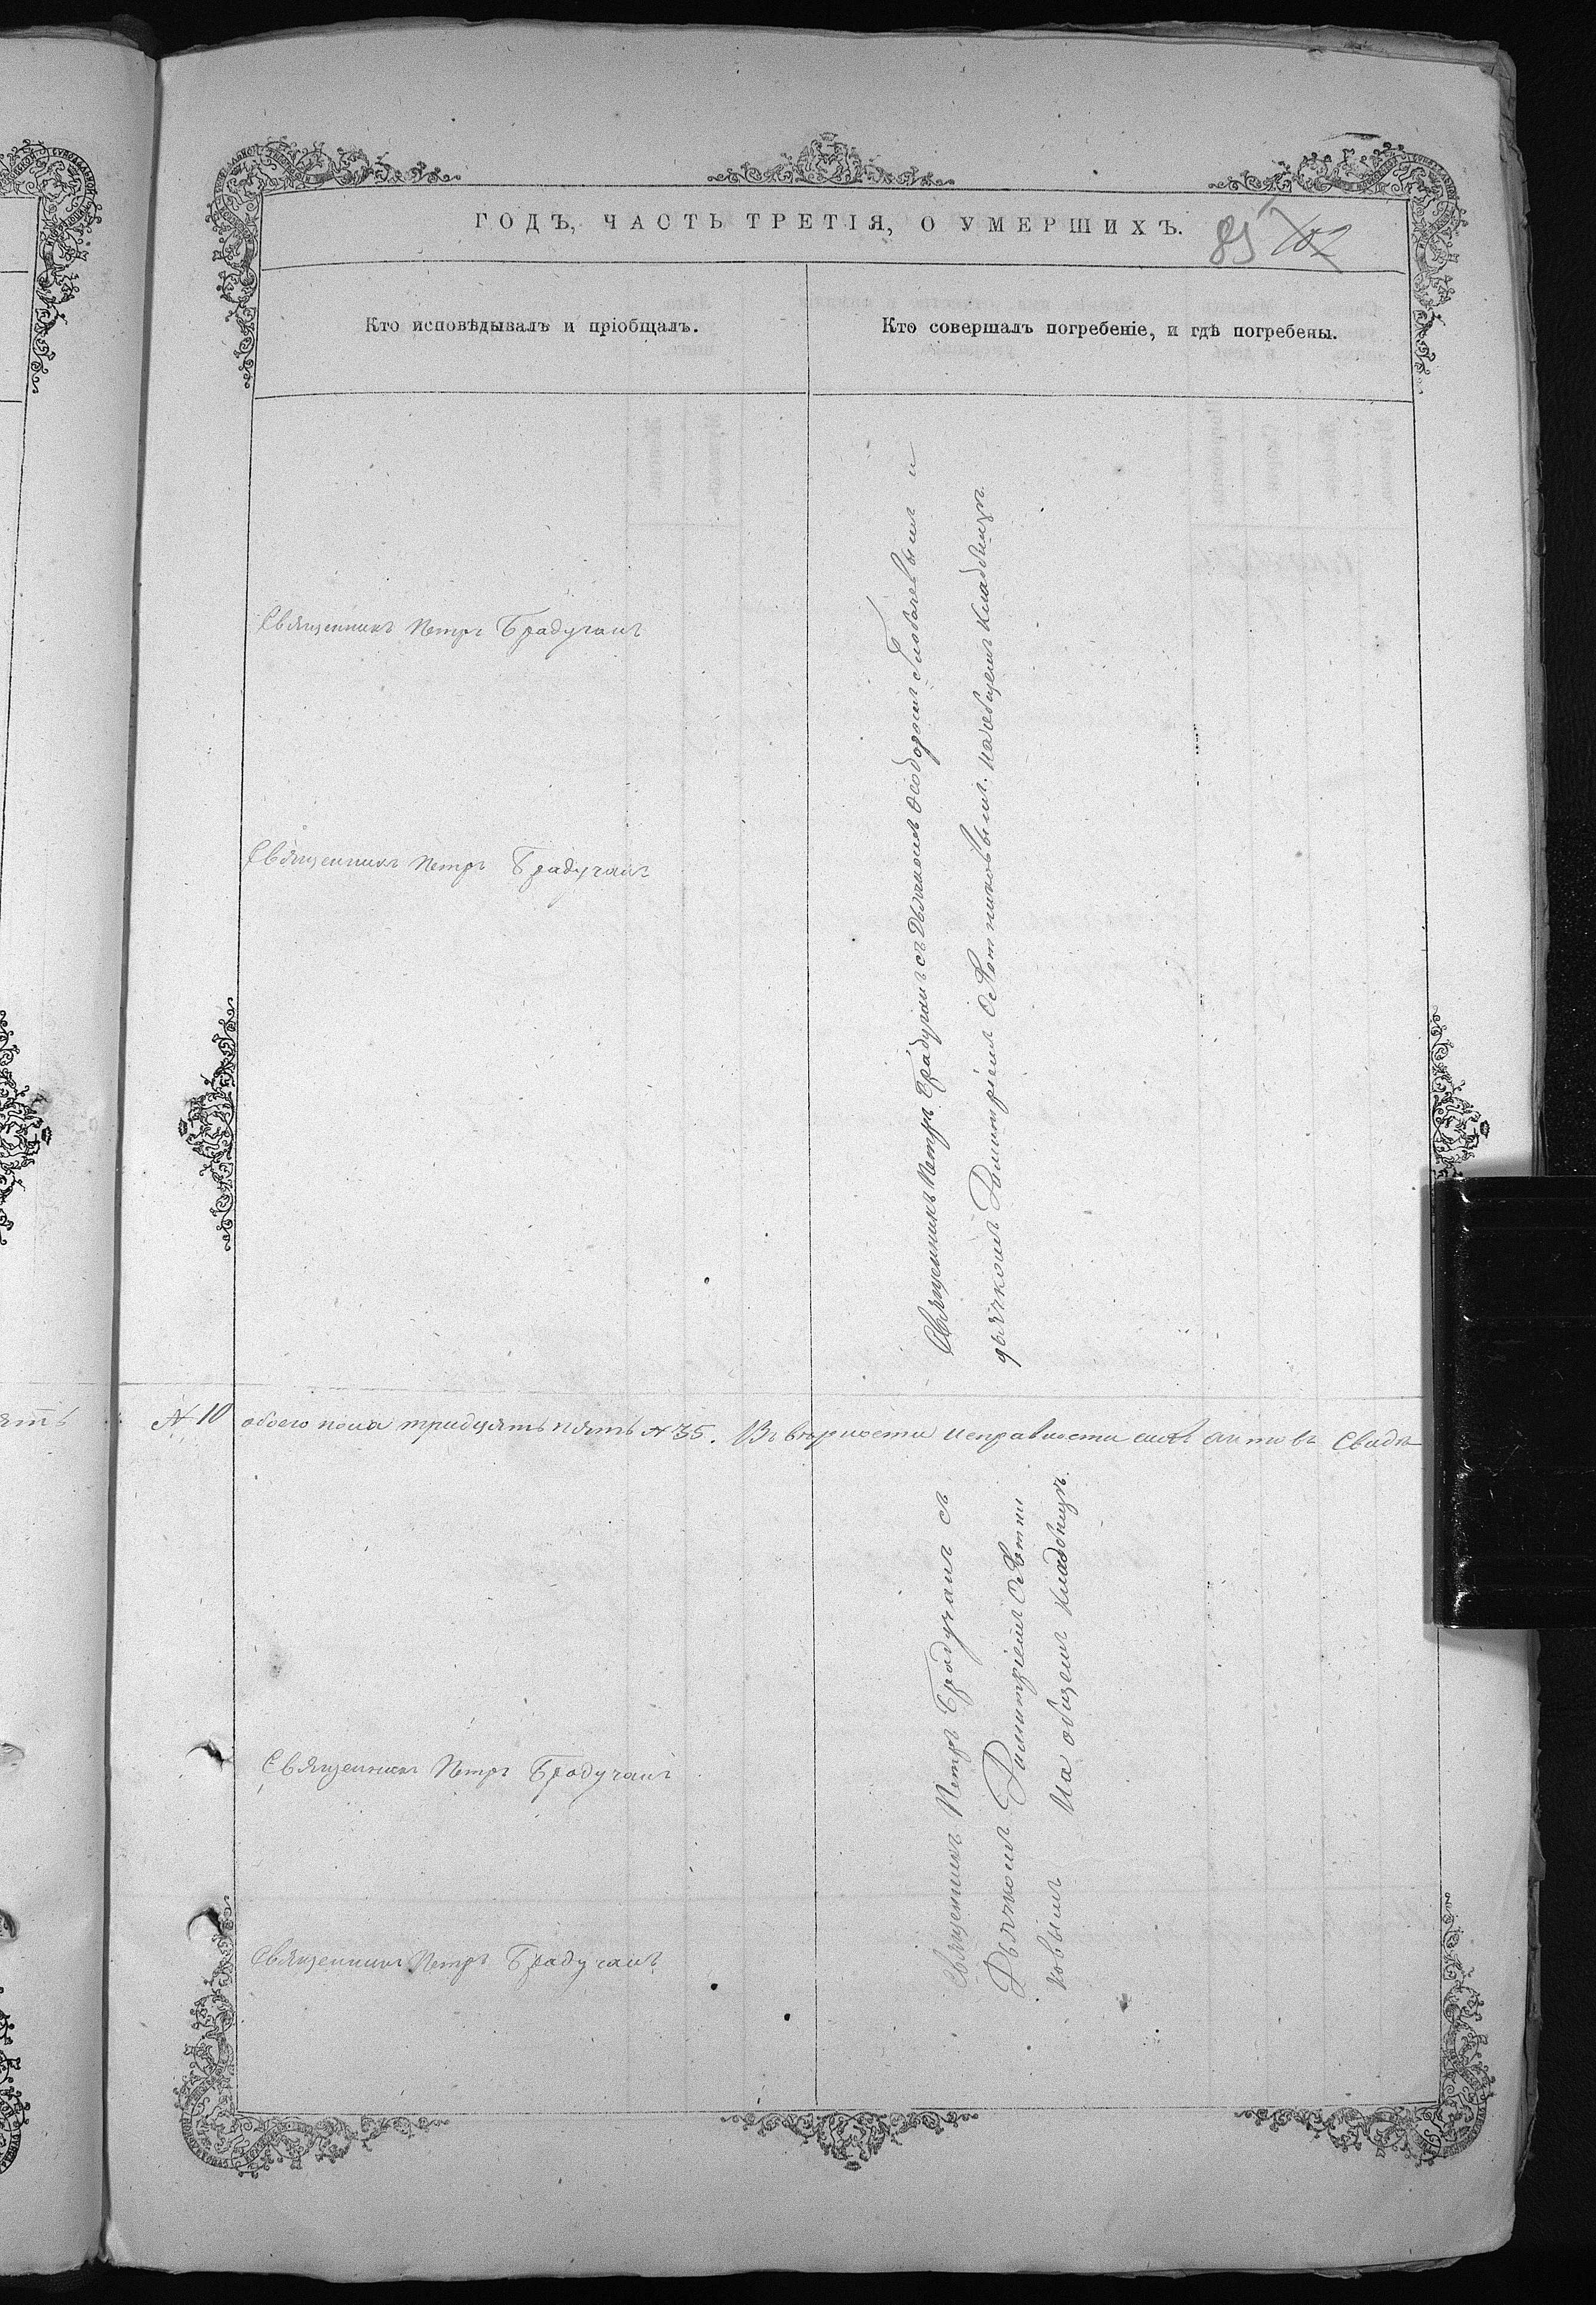 ГОДЪ, ЧАСТЬ ТРЕТІЯ, О УМЕРШИХЪ.
85 102
Кто исповѣдывалъ и пріобщалъ.
Кто совершалъ погребеніе, и гдѣ погребены.
Священникъ Петръ Брадучанъ
Священникъ Петръ Брадучанъ
Священникъ Петръ Брадучанъ съ Дьякономъ Ѳеодоромъ и
дьячкомъ Димитріемъ на общемъ кладбищѣ
№ 10 обоего пола тридцять пять № 35. Въ вѣрности исправности сихъ актовъ Свидѣ
Священникъ Петръ Брадучанъ
Священникъ Петръ Брадучанъ
Священникъ Петръ Брадучанъ съ
Дьячкомъ Димитріемъ
ковымъ На общемъ кладбищѣ